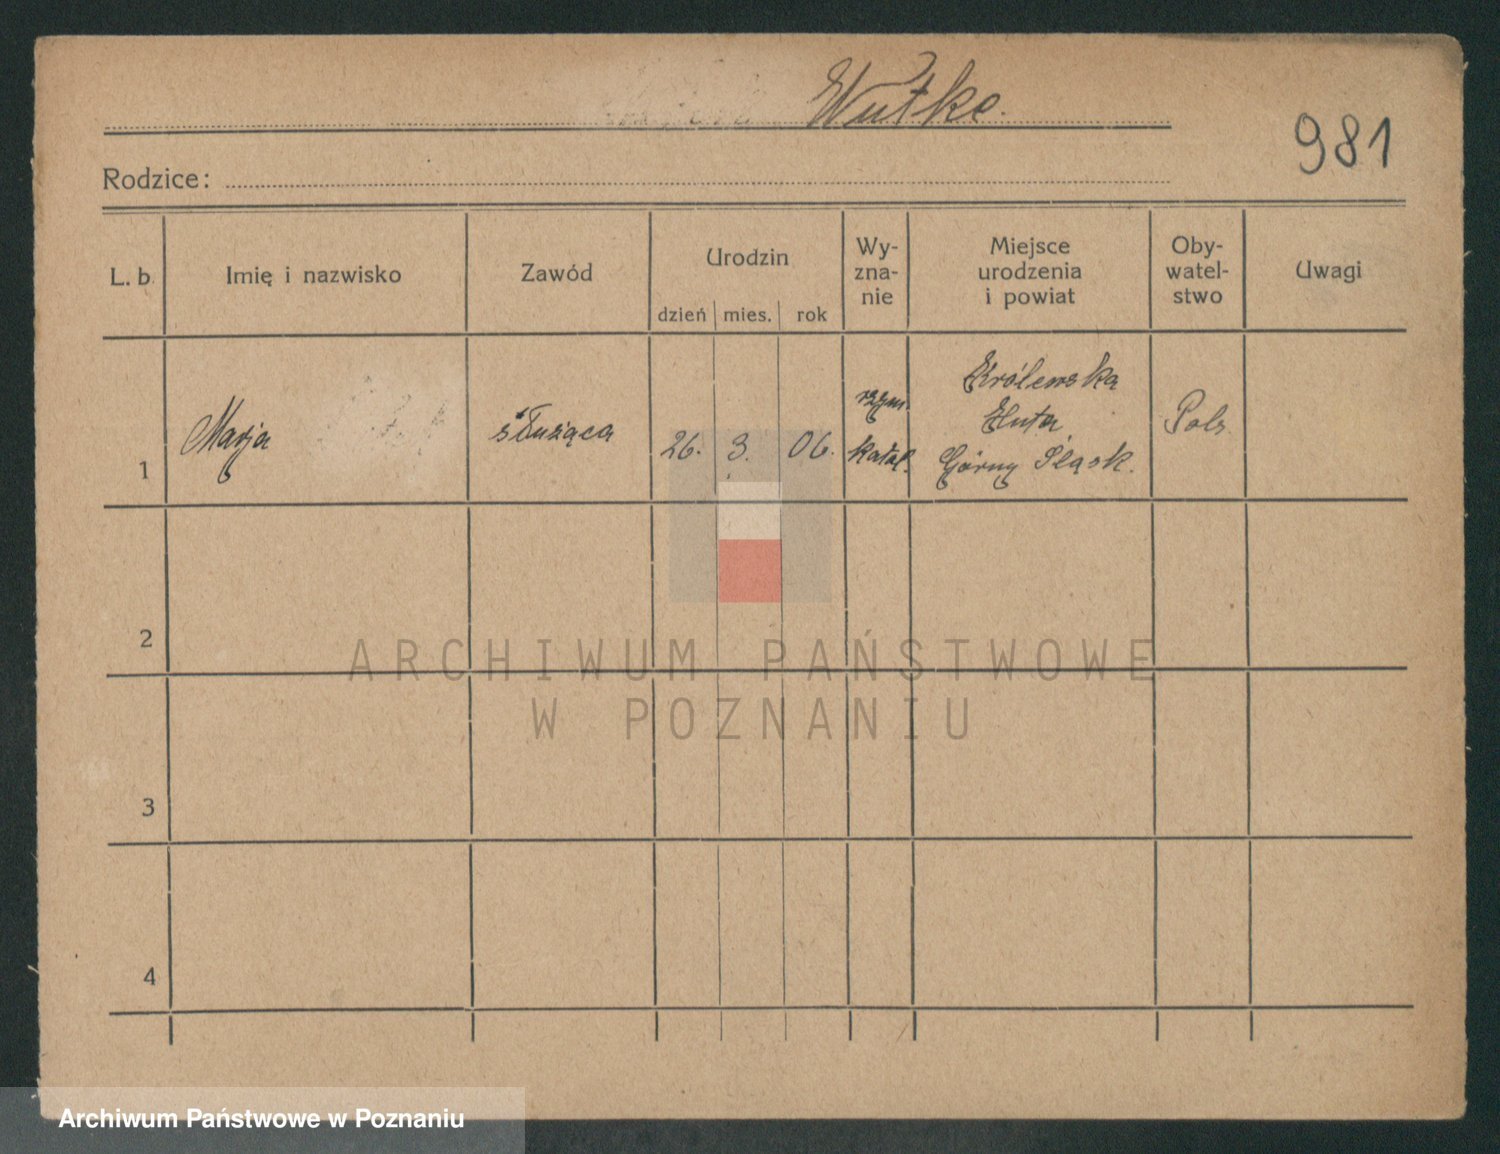 Wutke.
981
Rodzice:
L. b. Imię i nazwisko Zawód Urodzin Wy- Miejsce Oby- Uwagi
zna- urodzenia watel-
nie i powiat stwo
dzień mies. rok
1 Marja służąca 26. 3. 06. rzym. katol. Królewska Pols.
Huta
Górny Śląsk.
2
3
4
ARCHIWUM PAŃSTWOWE
W POZNANIU
Archiwum Państwowe w Poznaniu